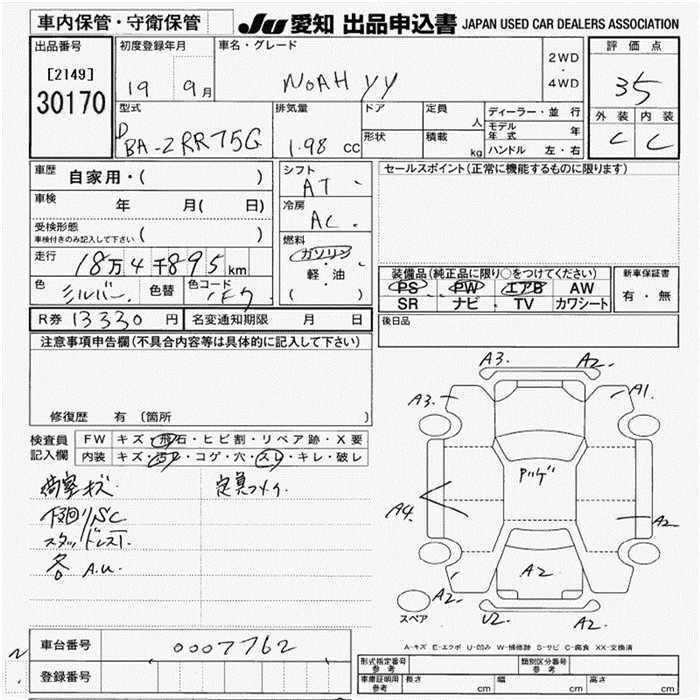 車内保管・守衛保管
JU 愛知 出品申込書 JAPAN USED CAR DEALERS ASSOCIATION
出品番号
[2149]
30170
初度登録年月
19 9月
車名・グレード
NOAH YY
2WD
・
4WD
評価点
35
外装 内装
C C
型式
DBA-ZRR75G
排気量
1.98 cc
ドア
形状
定員
人
積載
kg
ディーラー・並行
モデル年式 年
ハンドル 左・右
車歴 自家用・( )
車検 年 月( 日)
受検形態
車検付きのみ記入して下さい ( )
走行 18万4千895km
色 シルバー 色替 色コード 1F7
シフト
AT
冷房
AC
燃料
ガソリン
軽・油
( )
セールスポイント(正常に機能するものに限ります)
装備品(純正品に限り○をつけてください)
PS PW エアB AW
SR ナビ TV カワシート
新車保証書
有・無
R券 13330 円 名変通知期限 月 日
後日品
注意事項申告欄(不具合内容等は具体的に記入して下さい)
修復歴 有 〔箇所 〕
検査員記入欄
FW キズ・飛石・ヒビ割・リペア跡・X要
内装 キズ・汚レ・コゲ・穴・スレ・キレ・破レ
荷室キズ
下回りSC
各A.U.
A3. A2.
A3. A1.
A4. A2
A2
A2. U2. A2.
スペア
A-キズ E-エクボ U-凹み W-補修跡 S-サビ C-腐食 XX-交換済
車台番号 0007762
登録番号
型式指定番号 参考
類別区分番号 参考
車庫証明用 参考 長さ cm 幅 cm 高さ cm